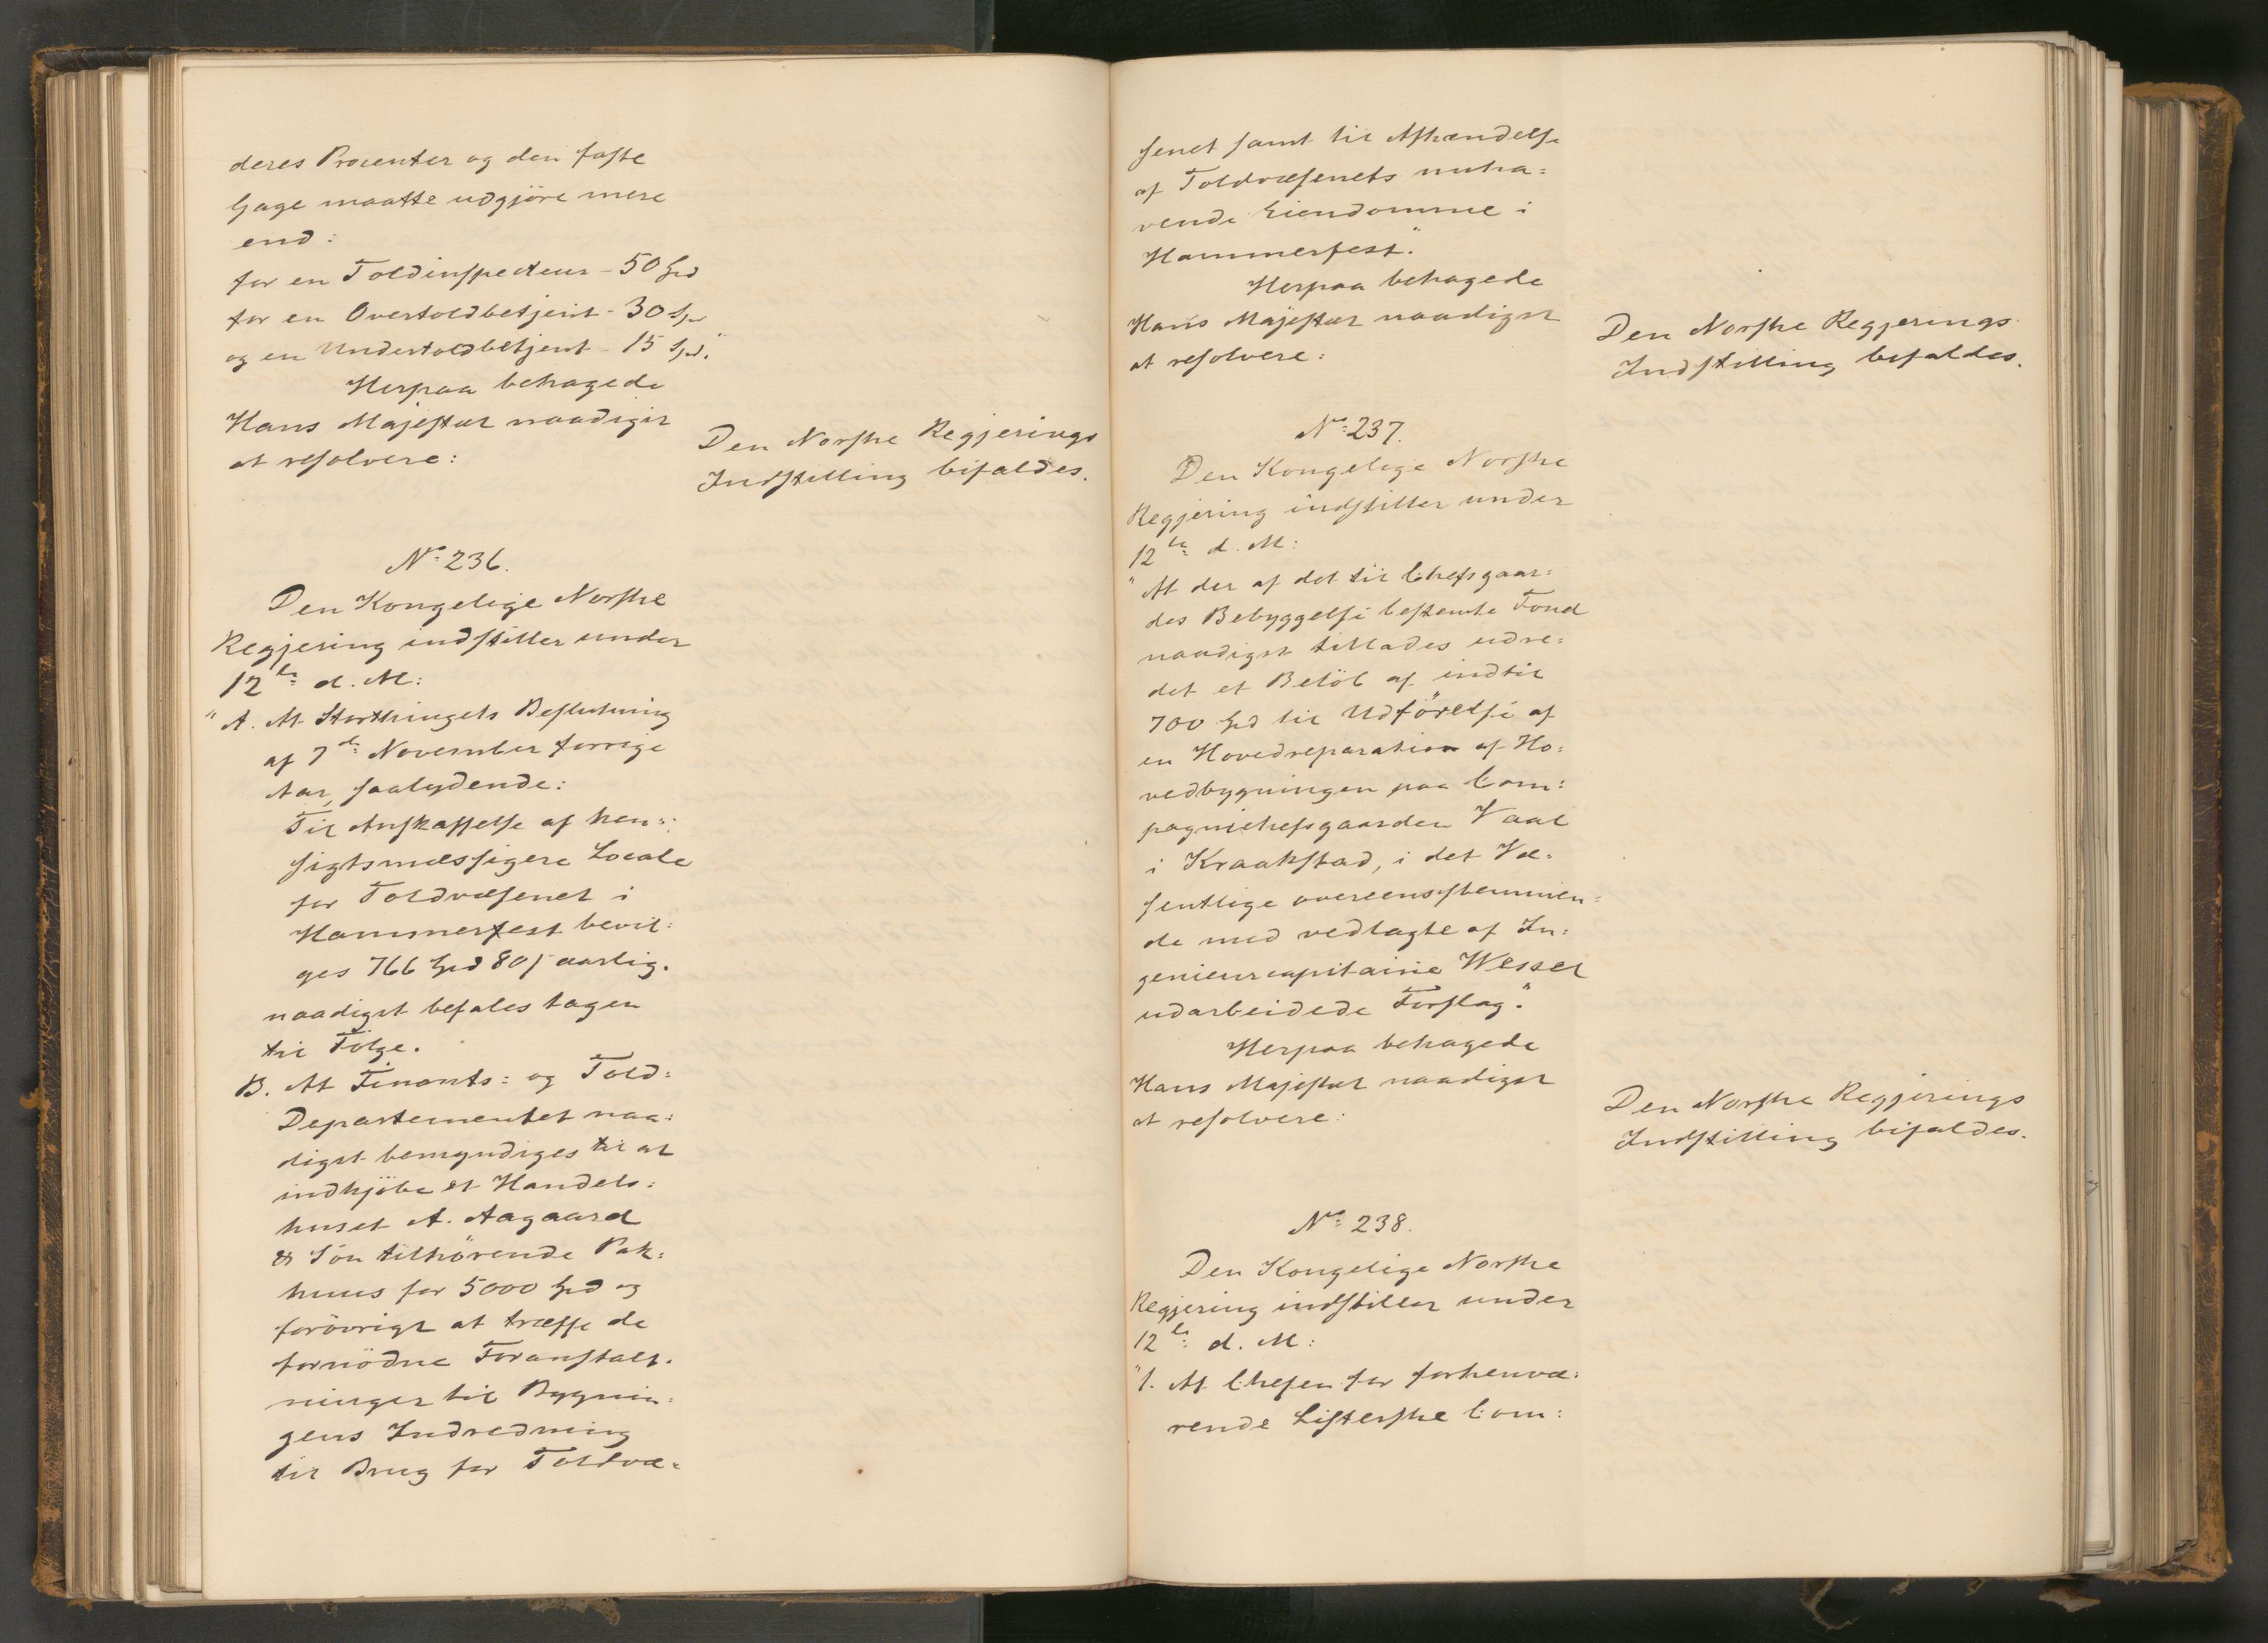 deres Procenter og den faste
Gage maatte udgjöre mere
end:
for en Toldinspecteur - 50 Spd
for en Overtoldbetjent - 30 Spd
og en Undertoldbetjent - 15 Spd."
Herpaa behagede
Hans Majestæt naadigst
at resolvere:
Den Norske Regjerings
Indstilling bifaldes.
No: 236.
Den Kongelige Norske
Regjering indstiller under
12te d. M:
"A. At Storthingets Beslutning
af 7de November forrige
Aar, saalydende:
Til Anskaffelse af hen=
sigtsmæssigere Locale
for Toldvæsenet i
Hammerfest bevil=
ges 766 Spd 80 s aarlig.
naadigst befales tagen
til Fölge.
B. At Finants= og Told=
Departementet naa=
digst bemyndiges til at
indkjöbe et Handels=
huset A. Aagaard
& Sön tilhörende Pak=
huus for 5000 Spd og
forövrigt at træffe de
fornödne Foranstalt=
ninger til Bygnin=
gens Indredning
til Brug for Toldvæ=
senet samt til Afhændelse
af Toldvæsenets nuha=
vende Eiendomme i
Hammerfest."
Herpaa behagede
Hans Majestæt naadigst
at resolvere:
Den Norske Regjerings
Indstilling bifaldes.
No: 237.
Den Kongelige Norske
Regjering indstiller under
12te d. M:
"At der af det til Chefsgaar=
des Bebyggelse bestemte Fond
naadigst tillades udre=
det et Belöb af indtil
700 Spd til Udförelse af
en Hovedreparation af Ho=
vedbygningen paa Com=
pagniechefsgaarden Vaal
i Kraakstad, i det Væ=
sentlige overeensstemmen=
de med vedlagte af In=
genieurcapitaine Wessel
udarbeidede Forslag."
Herpaa behagede
Hans Majestæt naadigst
at resolvere:
Den Norske Regjerings
Indstilling bifaldes.
No: 238.
Den Kongelige Norske
Regjering indstiller under
12te d. M:
"1. At Chefen for forhenvæ=
rende Listerske Com=